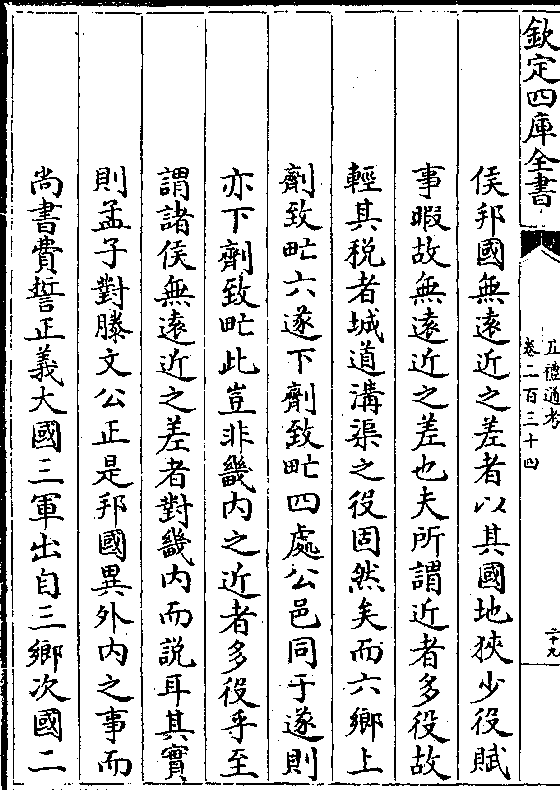 欽定四庫全書
五禮通考
卷二百三十四
二十九
侯邦國無遠近之差者以其國地狹少役賦
事暇故無遠近之差也夫所謂近者多役故
輕其税者城道溝渠之役固然矣而六鄉上
劑致甿六遂下劑致甿四處公邑同于遂則
亦下劑致甿此豈非畿内之近者多役乎至
謂諸侯無遠近之差者對畿内而説耳其實
則孟子對滕文公正是邦國異外内之事而
尚書費誓正義大國三軍出自三鄉次國二